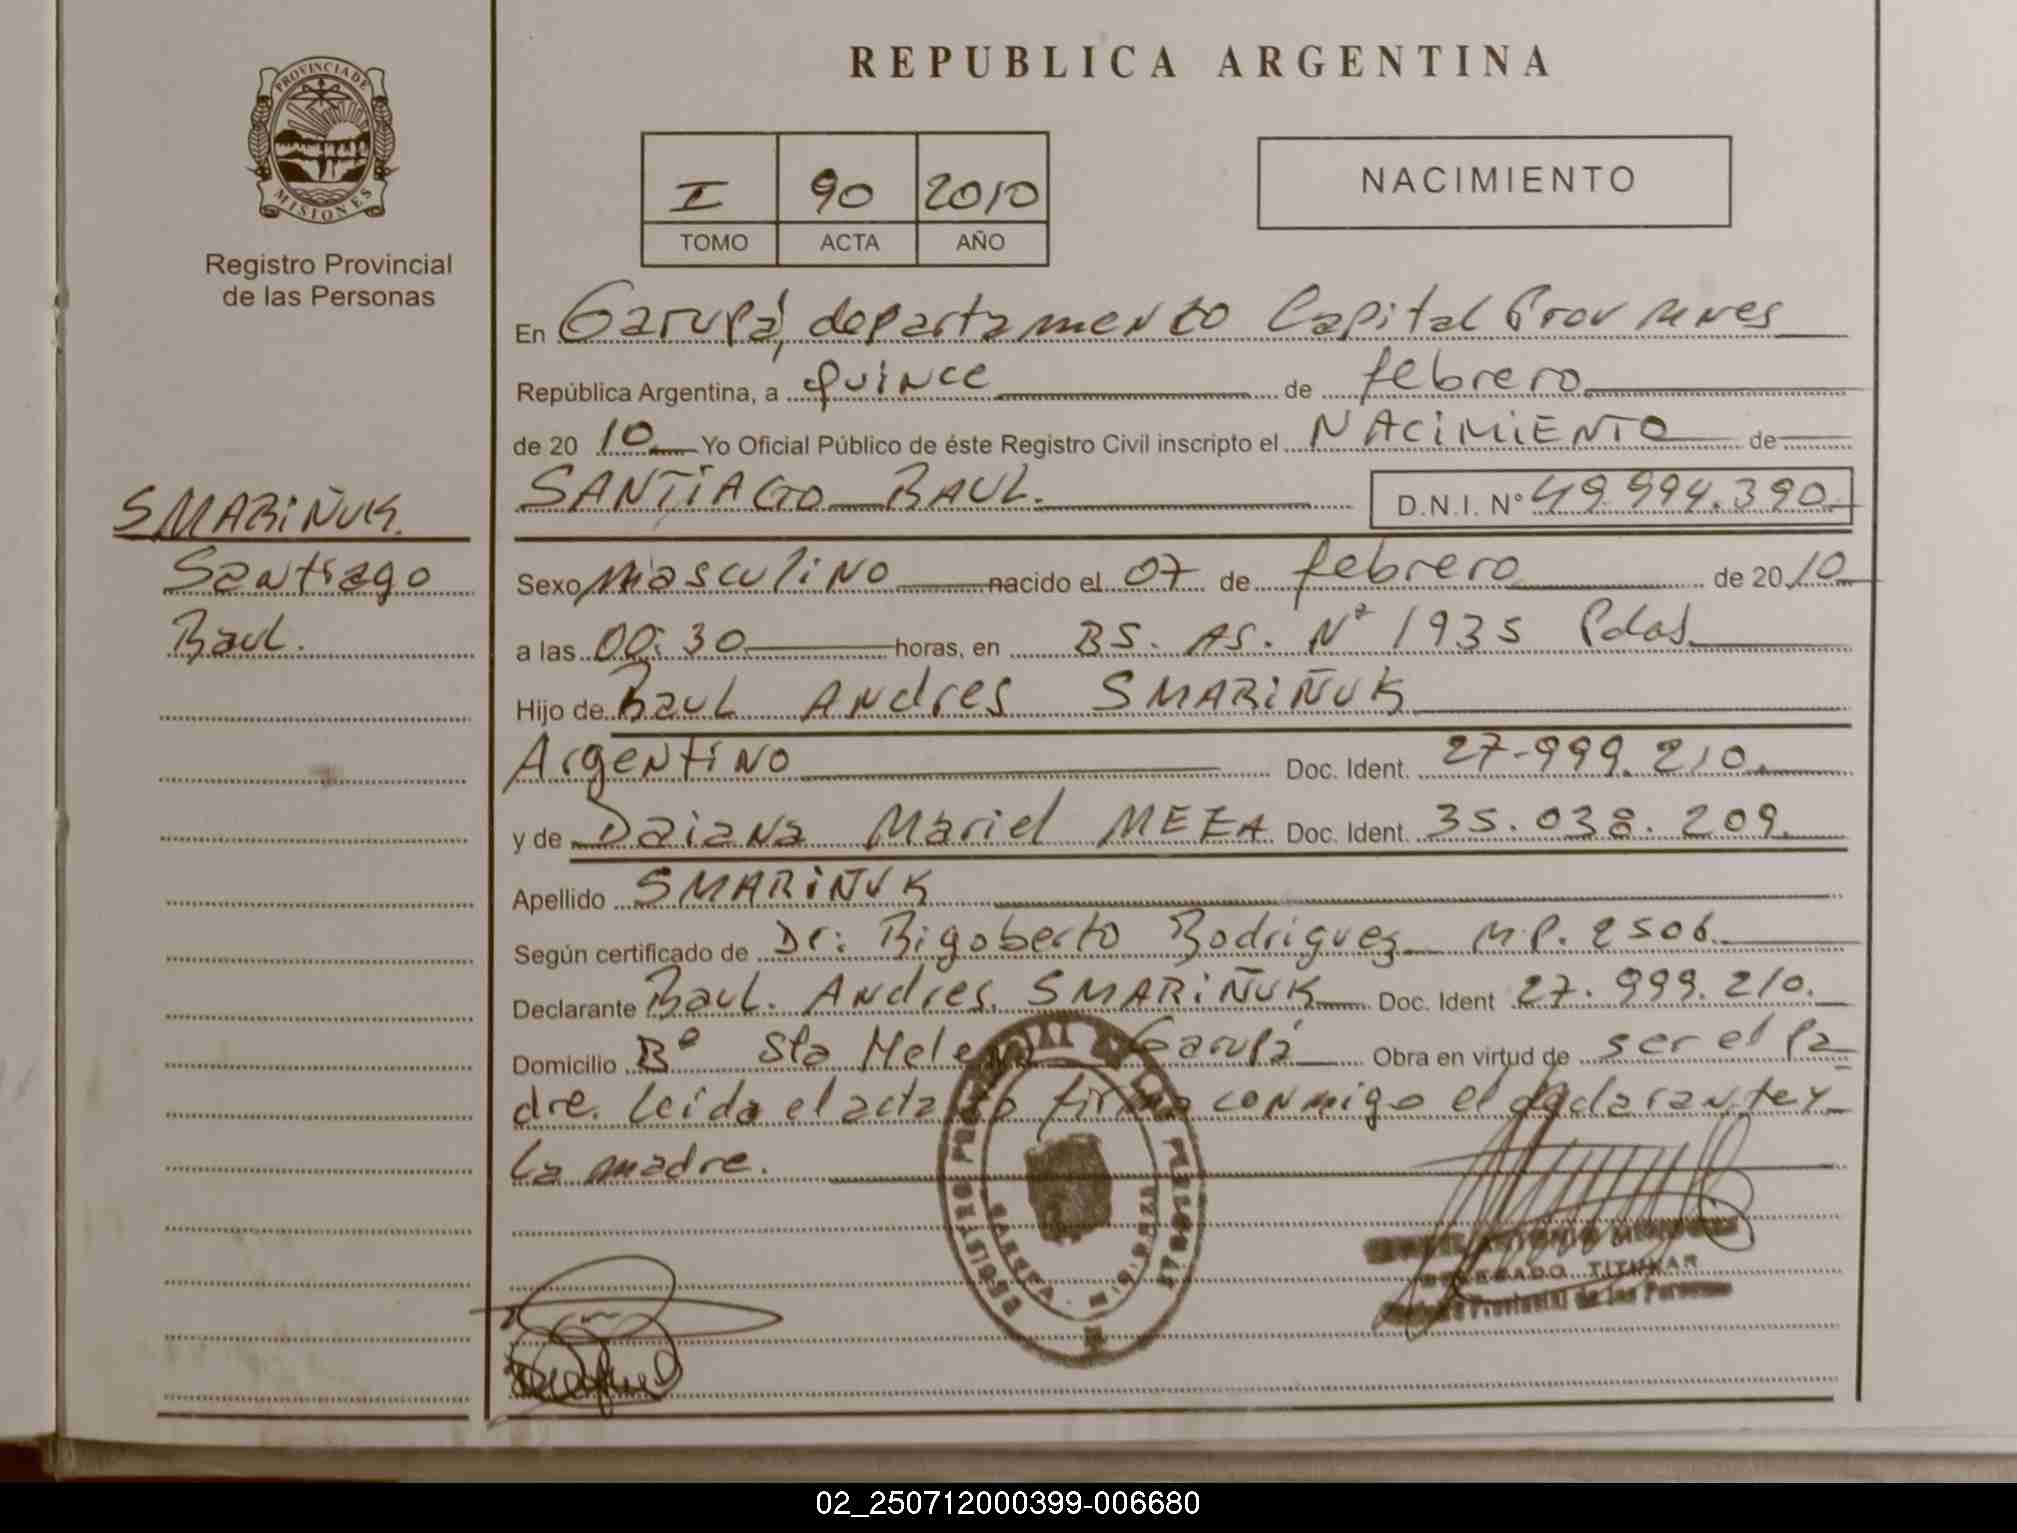 REPUBLICA ARGENTINA
PROVINCIA DE
MISIONES
Registro Provincial
de las Personas
I 90 2010
TOMO ACTA AÑO
NACIMIENTO
En Garupá, departamento Capital Prov
República Argentina, a quince de febrero
de 20 10 Yo Oficial Público de éste Registro Civil inscripto el NACIMIENTO de
SANTIAGO RAUL. D.N.I. N° 49.994.390
SMARIÑUK.
Santiago
Raul.
Sexo masculino nacido el 07 de febrero de 20 10
a las 00:30 horas, en BS. AS. N° 1935 Pdas
Hijo de Raul Andres SMARIÑUK
Argentino Doc. Ident. 27-999.210.
y de Daiana Mariel MEZA Doc. Ident. 35.038.209.
Apellido SMARIÑUK
Según certificado de Dr: Rigoberto Rodriguez M.P. 2506.
Declarante Raul. Andres. SMARIÑUK Doc. Ident 27.999.210.
Domicilio B° Sta Helena Garupá Obra en virtud de ser el pa
dre. Leida el acta la firma conmigo el declarante y
la madre.
DELEGADO TITULAR
Registro Provincial de las Personas
02_250712000399-006680